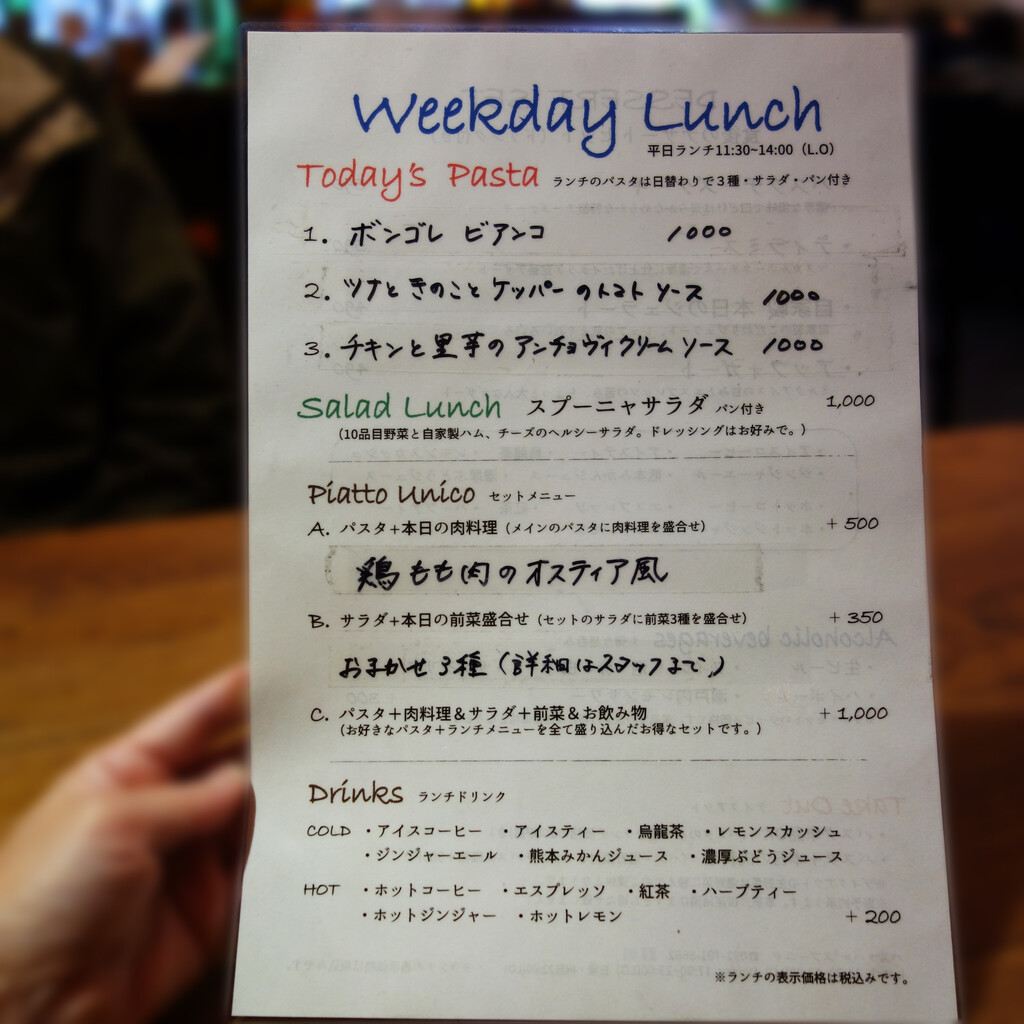 Weekday Lunch
平日ランチ11:30~14:00（L.O）
Today's Pasta ランチのパスタは日替わりで3種・サラダ・パン付き
1. ボンゴレ ビアンコ 1000
2. ツナときのことケッパーのトマトソース 1000
3. チキンと里芋のアンチョヴィクリームソース 1000
Salad Lunch スプーニャサラダ パン付き 1,000
（10品目野菜と自家製ハム、チーズのヘルシーサラダ。ドレッシングはお好みで。）
Piatto Unico セットメニュー
A. パスタ+本日の肉料理（メインのパスタに肉料理を盛合せ） + 500
鶏もも肉のオスティア風
B. サラダ+本日の前菜盛合せ（セットのサラダに前菜3種を盛合せ） + 350
おまかせ3種（詳細はスタッフまで）
C. パスタ＋肉料理＆サラダ＋前菜＆お飲み物 + 1,000
（お好きなパスタ＋ランチメニューを全て盛り込んだお得なセットです。）
Drinks ランチドリンク
COLD ・アイスコーヒー ・アイスティー ・烏龍茶 ・レモンスカッシュ
・ジンジャーエール ・熊本みかんジュース ・濃厚ぶどうジュース
HOT ・ホットコーヒー ・エスプレッソ ・紅茶 ・ハーブティー
・ホットジンジャー ・ホットレモン + 200
※ランチの表示価格は税込みです。